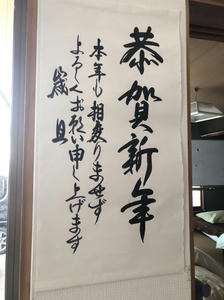 恭賀新年
本年も相変りませず
よろしくお願い申し上げます
歳旦